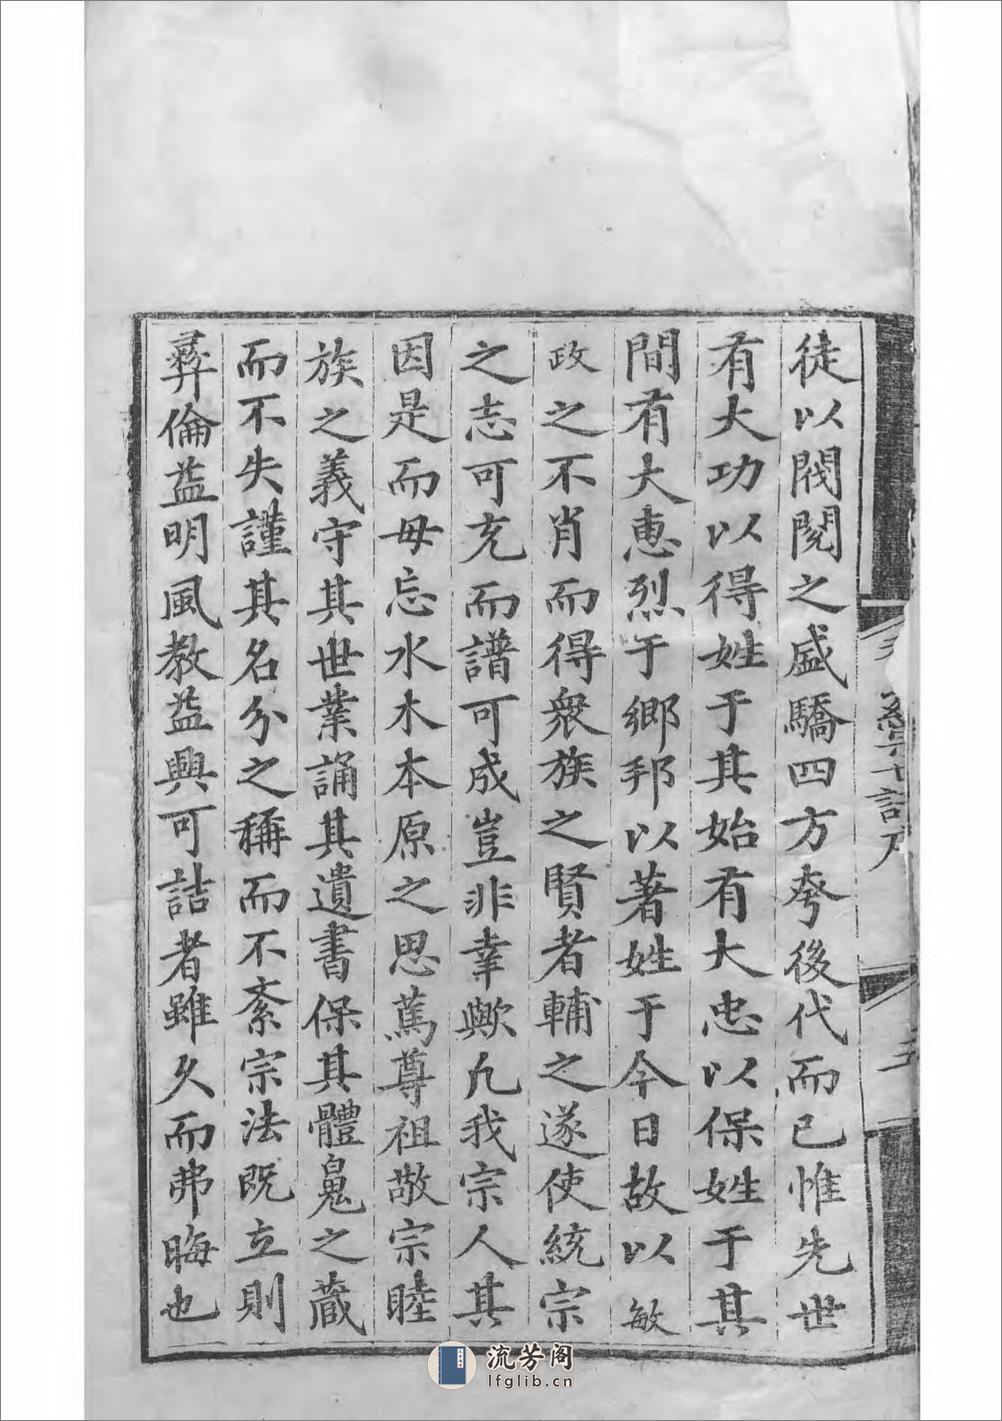 徒以閥閱之盛驕四方夸後代而已惟先世
有大功以得姓于其始有大忠以保姓于其
間有大惠烈于鄉邦以著姓于今日故以敏
政之不肖而得衆族之賢者輔之遂使統宗
之志可充而譜可成豈非幸歟凡我宗人其
因是而毋忘水木本原之思篤尊祖敬宗睦
族之義守其世業誦其遺書保其體魄之藏
而不失謹其名分之稱而不紊宗法既立則
彛倫益明風教益興可詰者雖久而弗晦也
流芳阁
lfglib.cn